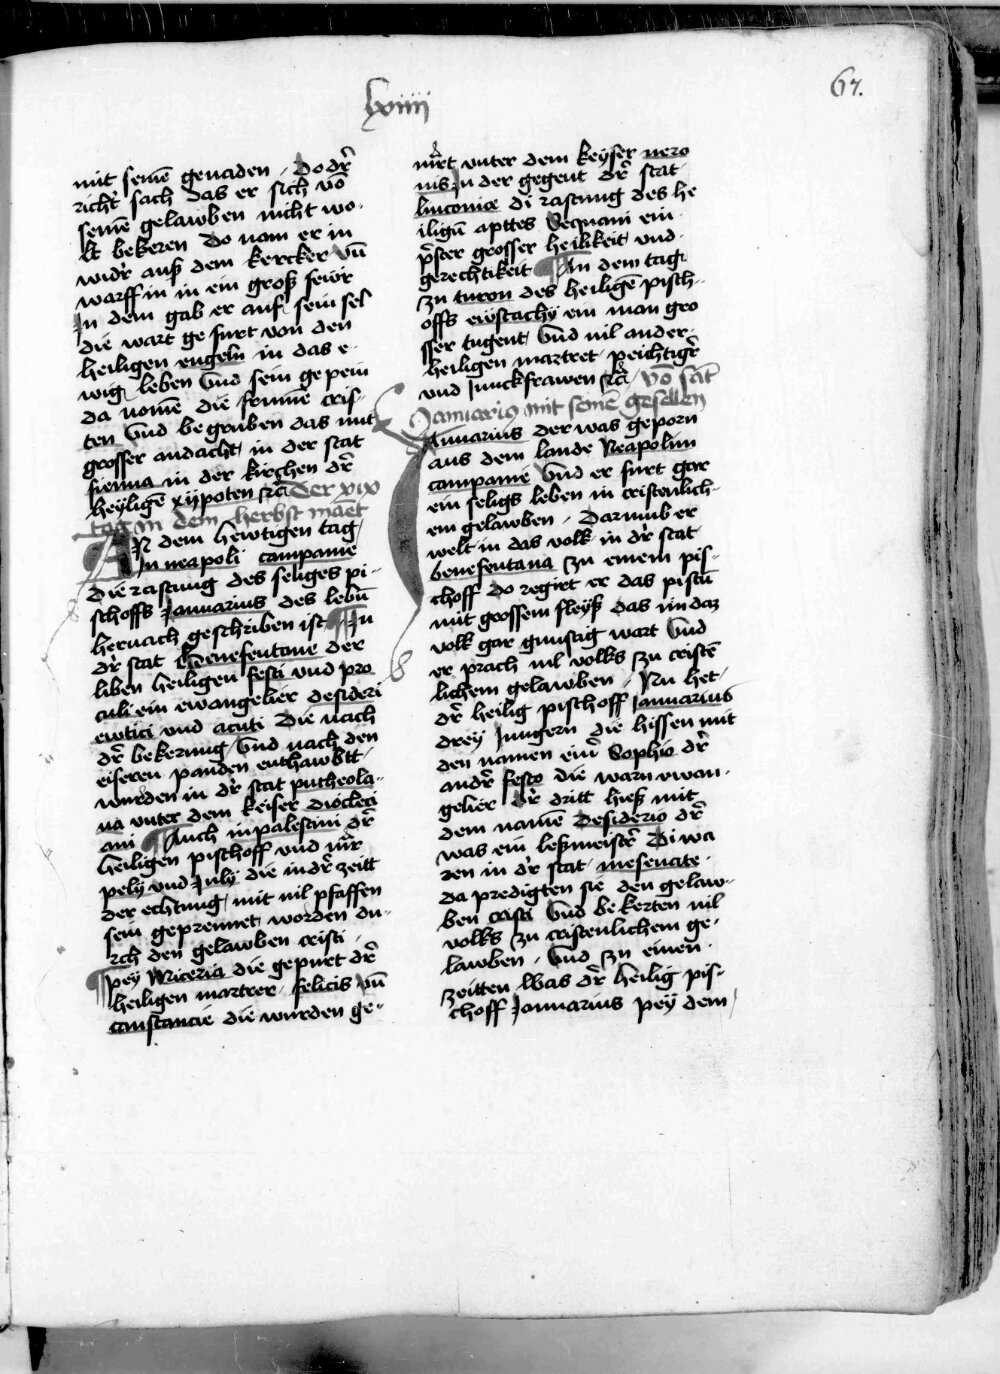 lxiiij
67.
mit seinē genaden / Do dr̄
richt̄ sach das er sich vō
seinē gelawben nicht wo-
lt bekeren do nam er in
widr̄ auß dem kercker vn̄
warff in in ein groß fewr
In dem gab er auf sein sel
die wart gefurt von den
heiligen engeln in das e-
wig leben Vnd sein gepein
da nomē die frumē cris-
ten Vnd begruben das mit
grosser andacht in der stat
sienna in der kirchen dr̄
heyligē xij poten rc̄ Der xix
tag in dem herbst maet
AN dem hewtigen tag
In neapoli campanie
die rastung des seliges pi-
schoffs Januarius des lebū
hernach geschriben ist ¶ In
dr̄ stat Benefentane der
liben heiligen festi vnd pro
culi ein ewangelier desideri
ewtici vnd acuti Die nach
dr̄ bekerung Vnd nach den
eiseren panden enthawbtt
wurden in dr̄ stat putheola-
na vnter dem keiser diocleci
ani ¶ Auch in palestini dr̄
heiligen pischoff vnd mr̄
pely vnd July die in dr̄ zeitt
der echtung mit vil pfaffen
sein geprennet worden du-
rch den gelawben cristi ·
¶ pey Nuceria die gepurt dr̄
heiligen martrer / felicis vn̄
constancie die wurden ge-
mr̄t vnter dem keyser nero
nis In der gegent dr̄ stat
linconice di rastung des he
iligū apttes Sequani ein
pr̄ster grosser heilikeit vnd
gerechtikeit ¶ An dem tag
zu turon des heiligē pisch-
offs ewstachy ein man gro
sser tugent Vnd vil ander
heiligen martret peichtigr̄
vnd Junckfrawen rc̄ / Vō sāt
Januario mit seinē gesellen
Januarius der was geporn
aus dem lande Neapolim
campanie Vnd er furt gar
ein seligs leben in cristenlich-
em gelawben / Darumb er
welt in das volk in dr̄ stat
benefentana zu einem pis-
choff do regirt er das pistū
mit grossem fleyß das im daz
volk gar gunstig wart Vnd
er prach vil volks zu cristē
lichem gelawben / Nu het
dr̄ heilig pischoff Januarius
drey Jungern die hissen mit
den namen einr̄ Sophio dr̄
andr̄ festo die warn ewan-
gelier Dr̄ dritt hieß mit
dem namē Desiderio dr̄
was ein leßmeistr̄ Di wa
ren in dr̄ stat mesenate ·
da predigten sie den gelaw-
ben cristi Vnd bekerten vil
volks zu cristenlichem ge-
lawben / Vnd zu einen
zeitten Was dr̄ heilig pis-
choff Januarius pey dem